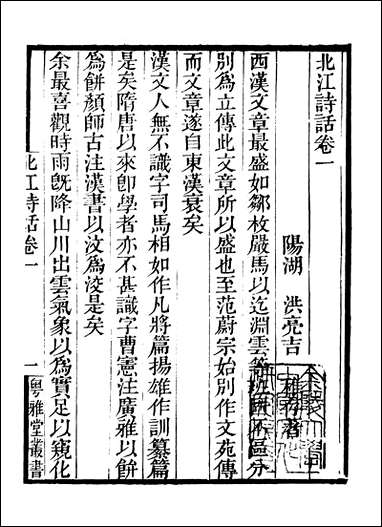 北江詩話卷一
陽湖 洪亮吉
西漢文章最盛如鄒枚嚴馬以迄淵雲等班固不區分
別為立傳此文章所以盛也至范蔚宗始別作文苑傳
而文章遂自東漢衰矣
漢文人無不識字司馬相如作凡將篇揚雄作訓纂篇
是矣隋唐以來卽學者亦不甚識字曹憲注廣雅以餅
為䴵顏師古注漢書以汶為洨是矣
余最喜觀時雨旣降山川出雲氣象以為實足以窺化
北江詩話卷一
一
粵雅堂叢書